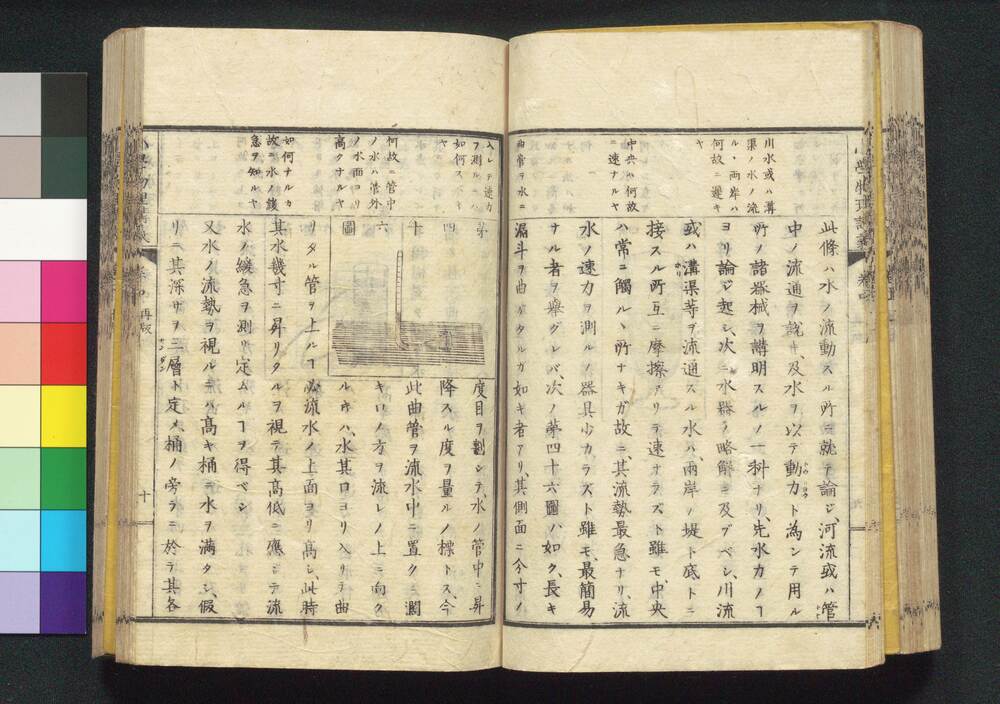 川水或ハ溝
渠ノ水ノ流
ル丶両岸ハ
何故ニ遲キ
ヤ
中央ハ何故
ニ速ナルヤ
曲管ヲ水ニ
此條ハ水ノ流動スル所ニ就テ論ジ河流或ハ管
中ノ流通ヲ説キ、及水ヲ以テ動力ト為シテ用ル
所ノ諸器械ヲ講明スルノ一科ナリ、先水力ノヿ
ヨリ論ジ起シ、次ニ水器ノ略解ニ及ブベシ、川流
或ハ溝渠等ヲ流通スル水ハ、兩岸ノ堤ト底トニ
接スル所互ニ摩擦アリテ速ナラズト雖モ、中央
ハ常ニ觸ル丶所ナキガ故ニ、其流勢最急ナリ、流
水ノ速力ヲ測ルノ器具少カラズト雖モ、最簡易
ナル者ヲ舉グレバ、次ノ第四十六圖ノ如ク、長キ
漏斗ヲ曲ゲタルガ如キ者アリ、其側面ニ分寸ノ
入レテ速力
ヲ測ルニハ
如何スベキ
ヤ
何故ニ管中
ノ水ハ管外
ノ水面ヨリ
高クナルヤ
如何ナルカ
故ニ水ノ緩
急ヲ知ルヤ
第
四
十
六
圖
度目ヲ劃シテ、水ノ管中ニ昇
降スル度ヲ量ルノ標トス、今
此曲管ヲ流水中ニ置クニ濶
キ口ノ方ヲ流レノ上ニ向ク
ル片ハ、水其口ヨリ入リテ曲
リタル管ヲ上ルヿ必流水ノ上面ヨリ高シ、此時
其水幾寸ニ昇リタルヲ視テ其高低ニ應ジテ流
水ノ緩急ヲ測リ定ムルヿヲ得ベシ
又水ノ流勢ヲ視ルニハ高キ桶ニ水ヲ満タシ、假
リニ其深サヲ三層ト定メ、桶ノ旁ラニ於テ其各
再版
十